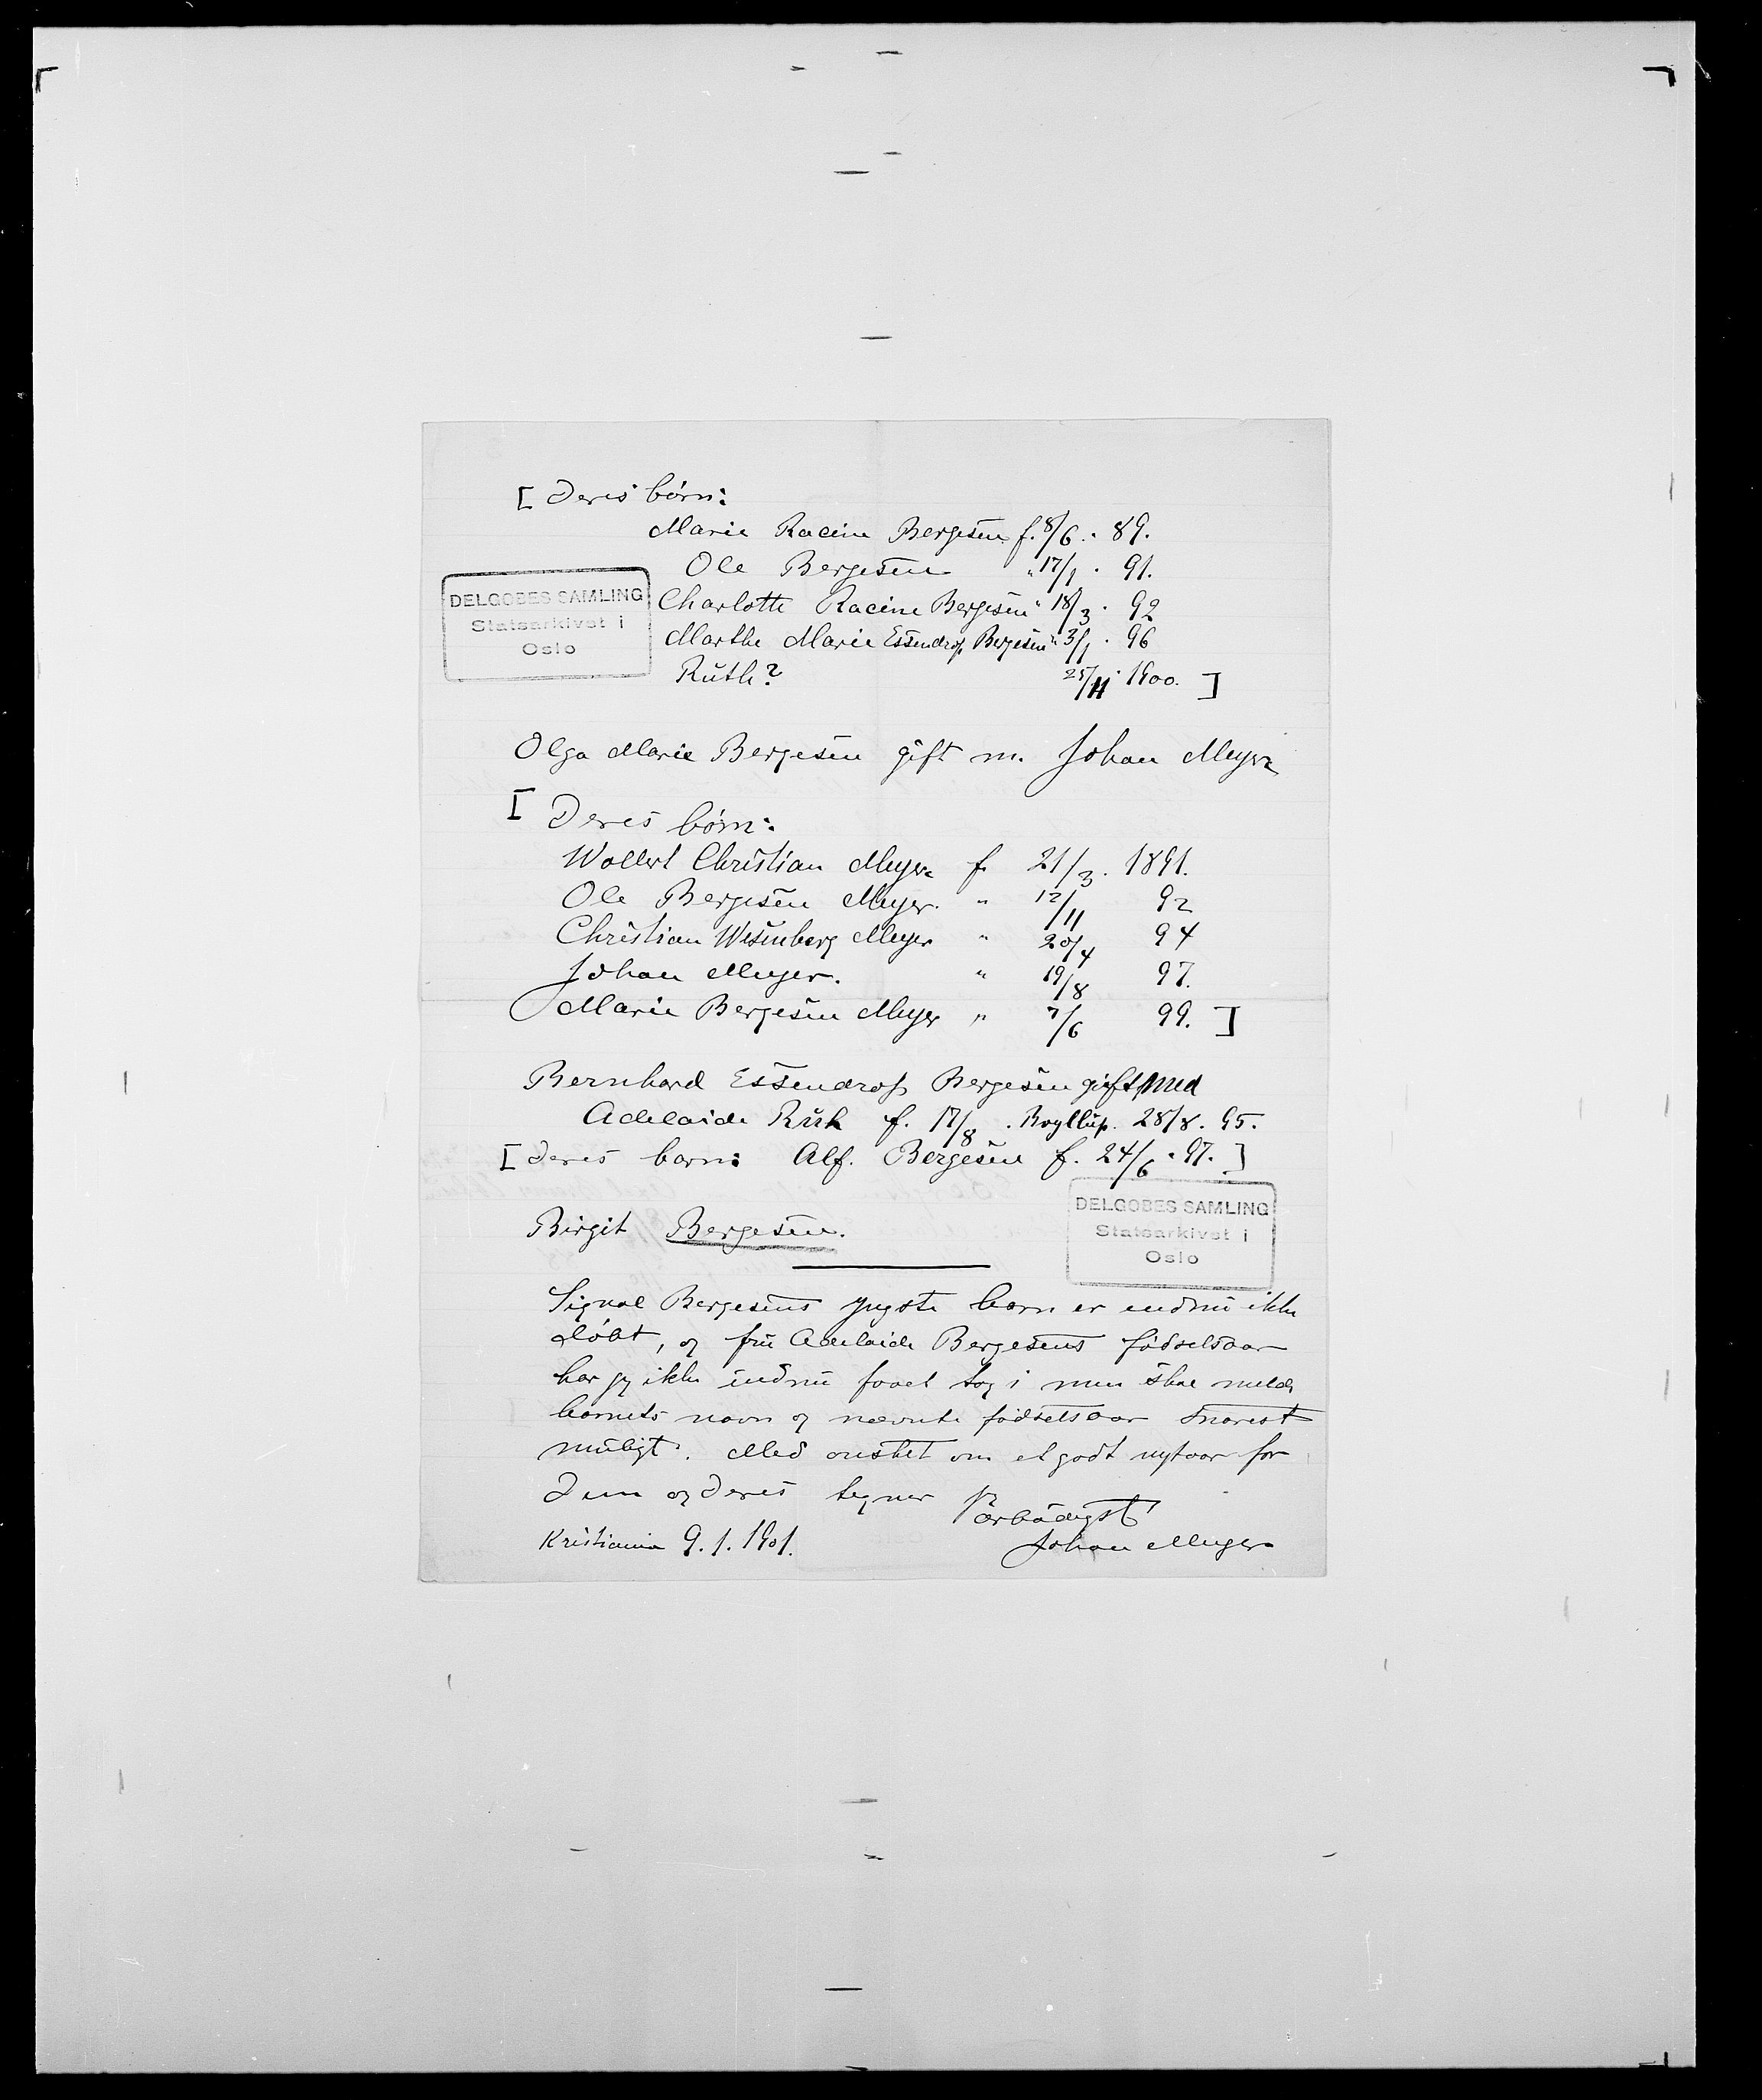 [ Deres børn:
Marie Racine Bergesen f. 8/6. 89.
Ole Bergesen " 17/1 . 91.
DELGOBES SAMLING
Statsarkivet i
Oslo
Charlotte Racine Bergesen " 18/3 . 92
Marthe Marie Essendrop Bergesen " 3/1 . 96
Ruth? 25/11 . 1900. ]
Olga Marie Bergesen gift m. Johan Meyer
[ Deres børn:
Wollert Christian Meyer f. 21/3. 1891.
Ole Bergesen Meyer. " 12/11 92
Christian Wesenberg Meyer " 20/4 94
Johan Meyer. " 19/8 97.
Marie Bergesen Meyer " 7/6 99. ]
Bernhard Essendrop Bergesen gift med
Adelaide f. 17/8 . Bryllup. 28/8. 95.
[ Deres barn: Alf. Bergesen f. 24/6 . 97. ]
DELGOBES SAMLING
Statsarkivet i
Oslo
Birgit Bergesen.
Sigval Bergesens yngste barn er endnu ikke
døbt, og fru Adelaide Bergesens fødselsaar
har jeg ikke endnu faaet tag i men skal melde
barnets navn og nævnte fødselsaar snarest
muligt. Med ønsket om et godt nytaar for
Dem og Deres tegner jeg
ærbødigst
Kristiania 9. 1. 1901. Johan Meyer